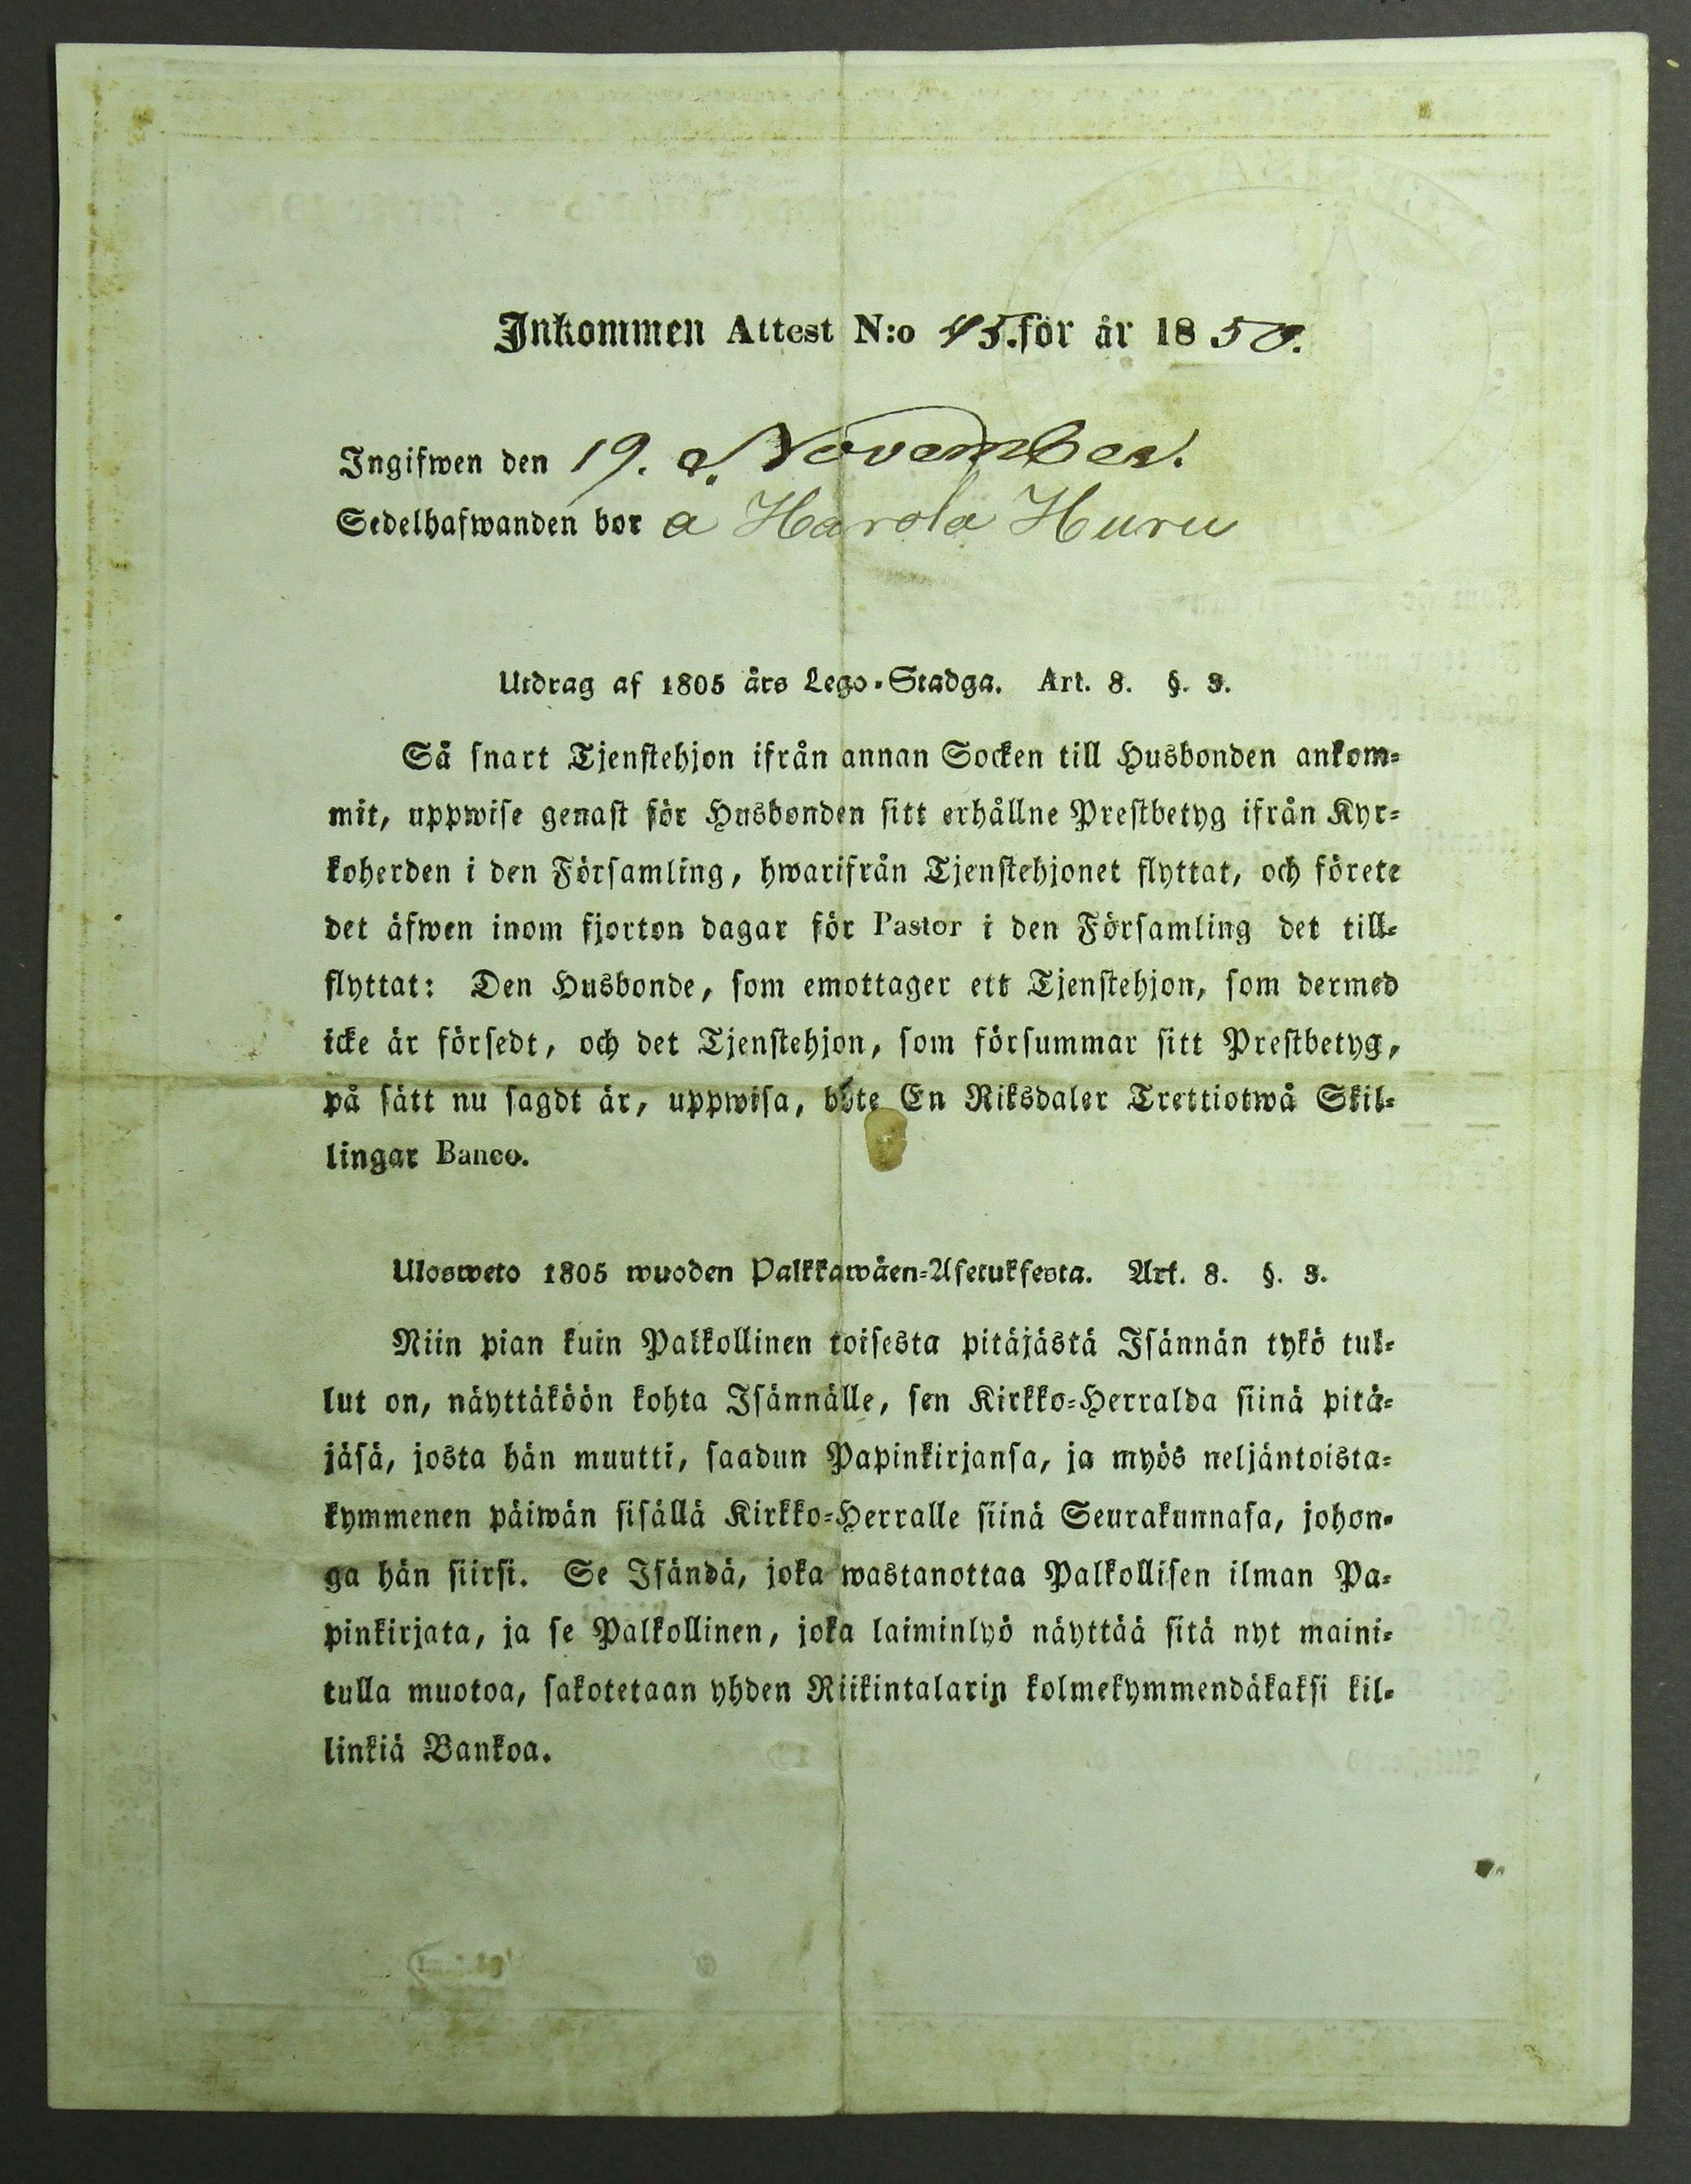 Inkommen Attest N:o 45. för år 1850.
Ingifwen den 19. November.
Sedelhafwanden bor a Harola Huru
Utdrag af 1805 års Lego-Stadga. Art. 8. §. 3.
Så snart Tjenstehjon ifrån annan Socken till Husbonden ankom-
mit, uppwise genast för Husbonden sitt erhållne Prestbetyg ifrån Kyr-
koherden i den Församling, hwarifrån Tjenstehjonet flyttat, och förete
det äfwen inom fjorton dagar för Pastor i den Församling det till-
flyttat: Den Husbonde, som emottager ett Tjenstehjon, som dermed
icke är försedt, och det Tjenstehjon, som försummar sitt Prestbetyg,
på sätt nu sagdt är, uppwisa, böte En Riksdaler Trettiotwå Skil-
lingar Banco.
Ulosweto 1805 wuoden Palkkawäen-Asetuksesta. Art. 8. §. 3.
Niin pian kuin Palkollinen toisesta pitäjästä Isännän tykö tul-
lut on, näyttäköön kohta Isännälle, sen Kirkko-Herralda siinä pitä-
jäsä, josta hän muutti, saadun Papinkirjansa, ja myös neljäntoista-
kymmenen päiwän sisällä Kirkko-Herralle siinä Seurakunnasa, johon-
ga hän siirsi. Se Isändä, joka wastanottaa Palkollisen ilman Pa-
pinkirjata, ja se Palkollinen, joka laiminlyö näyttää sitä nyt maini-
tulla muotoa, sakotetaan yhden Riikintalarin kolmekymmendäkaksi kil-
linkiä Bankoa.